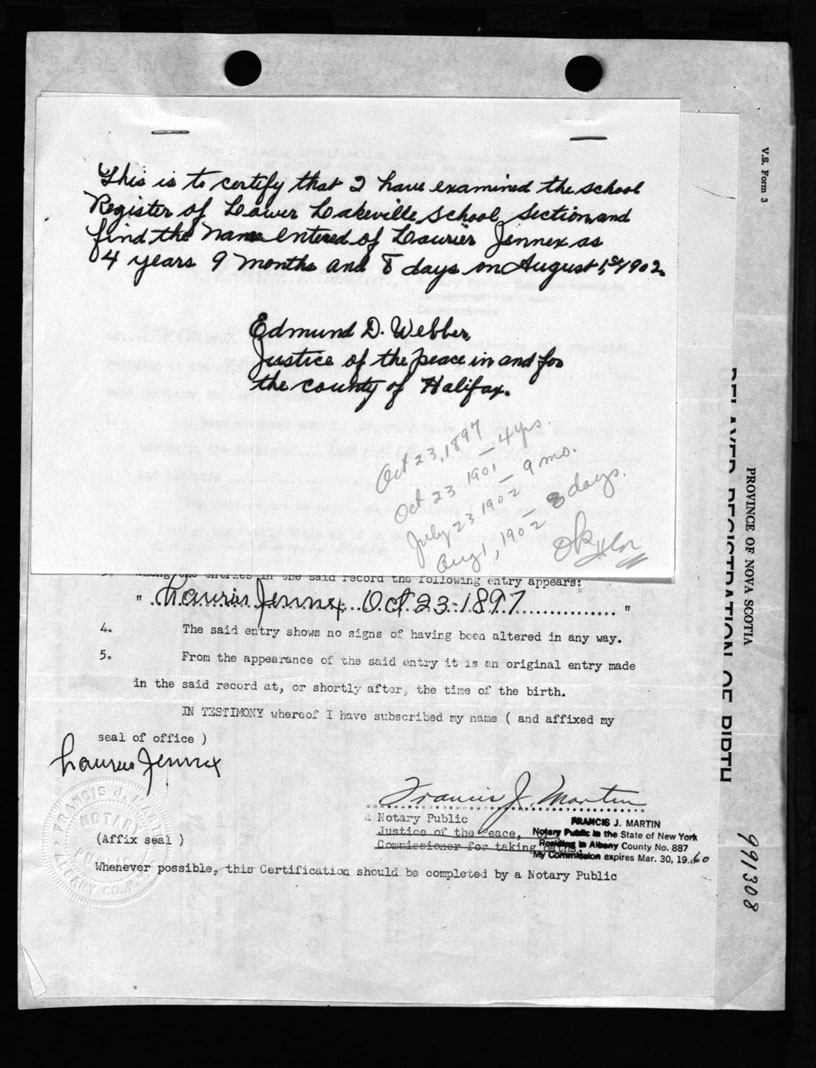 This is to certify that I have examined the school
Register of Lower Lakeville School Section and
find the name entered of Laurier Jennex as
4 years 9 months and 8 days on August 1st 1902.
Edmund D. Webber
Justice of the peace in and for
the county of Halifax.
Oct 23, 1897
Oct 23 1901 — 4 yrs.
July 23 1902 — 9 mo.
Aug 1, 1902 — 8 days.
OK
among the entries in the said record the following entry appears:
" Laurier Jennex Oct 23-1897 "
4. The said entry shows no signs of having been altered in any way.
5. From the appearance of the said entry it is an original entry made
in the said record at, or shortly after, the time of the birth.
IN TESTIMONY whereof I have subscribed my name ( and affixed my
seal of office )
Laurier Jennex
Francis J. Martin
A Notary Public
Justice of the Peace,
Commissioner for taking oaths.
FRANCIS J. MARTIN
Notary Public in the State of New York
Residing in Albany County No. 887
My Commission expires Mar. 30, 1960
FRANCIS J. MARTIN
NOTARY
PUBLIC
ALBANY CO.
(Affix seal )
Whenever possible, this Certification should be completed by a Notary Public
V.S. Form 3
PROVINCE OF NOVA SCOTIA
DELAYED REGISTRATION OF BIRTH
991308